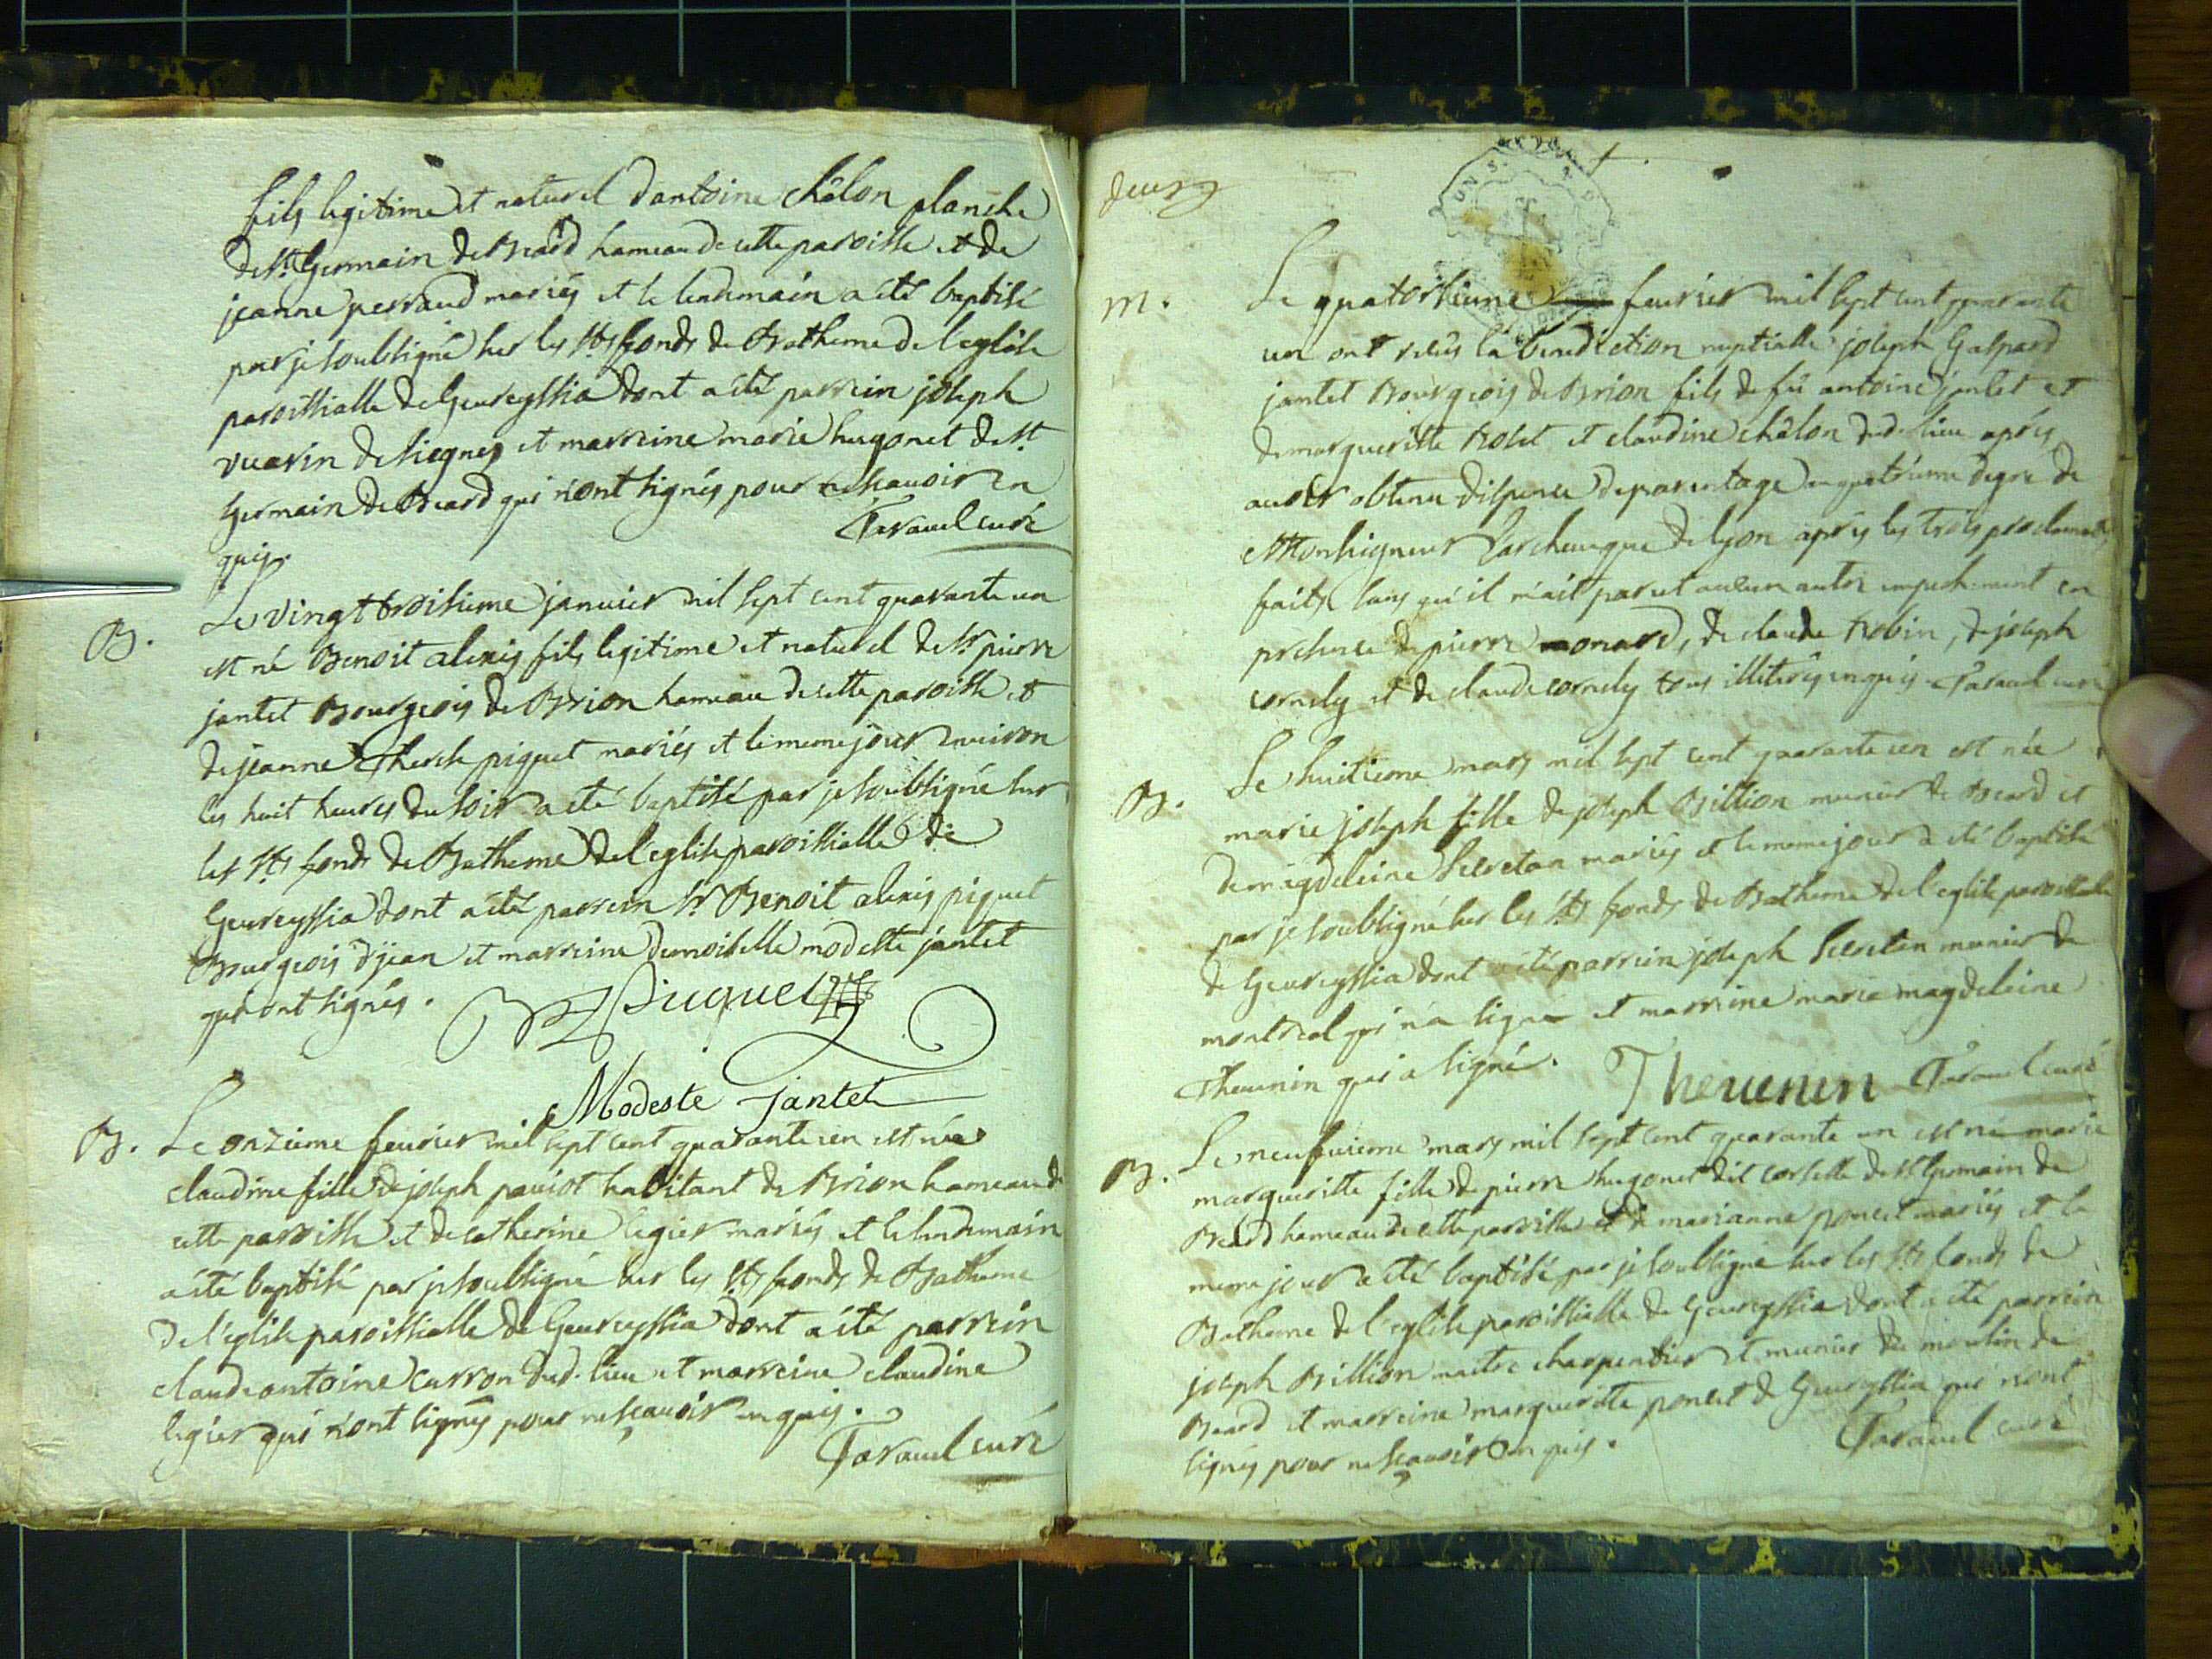 fils legitime et naturel d'antoine châlon planche
de St. Germain de Beard hameau de cette paroisse et de
jeanne perraud mariés et le lendemain a été baptisé
par je soubsigné sur les Sts fonds de Batheme de l'eglise
paroissialle de Geureyssia dont a été parrein joseph
vuarin de siegnes et marreine marie hugonet de St.
Germain de Beard qui n'ont signés pour ne scauoir en
quis. Taravel curé
B. Le vingt troisieme januier mil sept cent quarante un
est né Benoit alexis fils legitime et naturel de Sr pierre
jantet Bourgeois de Brion hameau de cette paroisse et
de jeanne Therese piquet mariés et le meme jour enuiron
les huit heures du soir a été baptisé par je soubsigné sur
les Sts fonds de Batheme de l'eglise paroissialle de
Geureyssia dont a été parrein Sr Benoit alexis piquet
Bourgeois djean et marreine demoiselle modeste jantet
qui ont signés. Picquet
Modeste jantet
B. Le onzieme feurier mil sept cent quarante un est née
claudine fille de joseph pauiot habitant de Brion hameau de
cette paroisse et de catherine legier mariés et le lendemain
a été baptisé par je soubsigné sur les Sts fonds de Batheme
de l'eglise paroissialle de Geureyssia dont a été parrein
claude antoine curron dud. lieu et marreine claudine
legier qui n'ont signés pour ne scauoir en quis.
Taravel curé
deux
m. Le quatorsieme feurier mil sept cent quarante
un ont receûs la benediction nuptialle joseph Gaspard
jantet Bourgeois de Brion fils de fû antoine jantet et
de margueritte rolet et claudine châlon dud. lieu aprés
auoir obtenu dispense de parentage au quatrieme degre de
Monseigneur l'archeueque de lyon aprés les trois proclamat
faites sans qu'il n'ait parut aucun autre empechement en
presence de pierre monard, de claude robin, de joseph
cornely et de claude cornely tous illiterés enquis Taravel curé
B. Le huitieme mars mil sept cent quarante un est née
marie joseph fille de joseph Billion munier de Beard et
de magdeleine Secretan mariés et le meme jour a été baptisé
par je soubsigné sur les Sts fonds de Batheme de l'eglise paroissialle
de Geureyssia dont a été parrein joseph Secretan munier de
montreal qui n'a signé et marreine marie magdeleine
Theuenin qui a signé. Theuenin Taravel curé
B. Le neufuieme mars mil sept cent quarante un est né marie
margueritte fille de pierre hugonet dit corselle de St Germain de
Beard hameau de cette paroisse et de marianne poncet mariés et le
meme jour a été baptisé par je soubsigné sur les Sts fonds de
Batheme de l'eglise paroissialle de Geureyssia dont a été parrein
joseph Billion maitre charpentier et munier du moulin de
Beard et marreine margueritte poncet de Geureyssia qui n'ont
signés pour ne scauoir en quis. Taravel curé